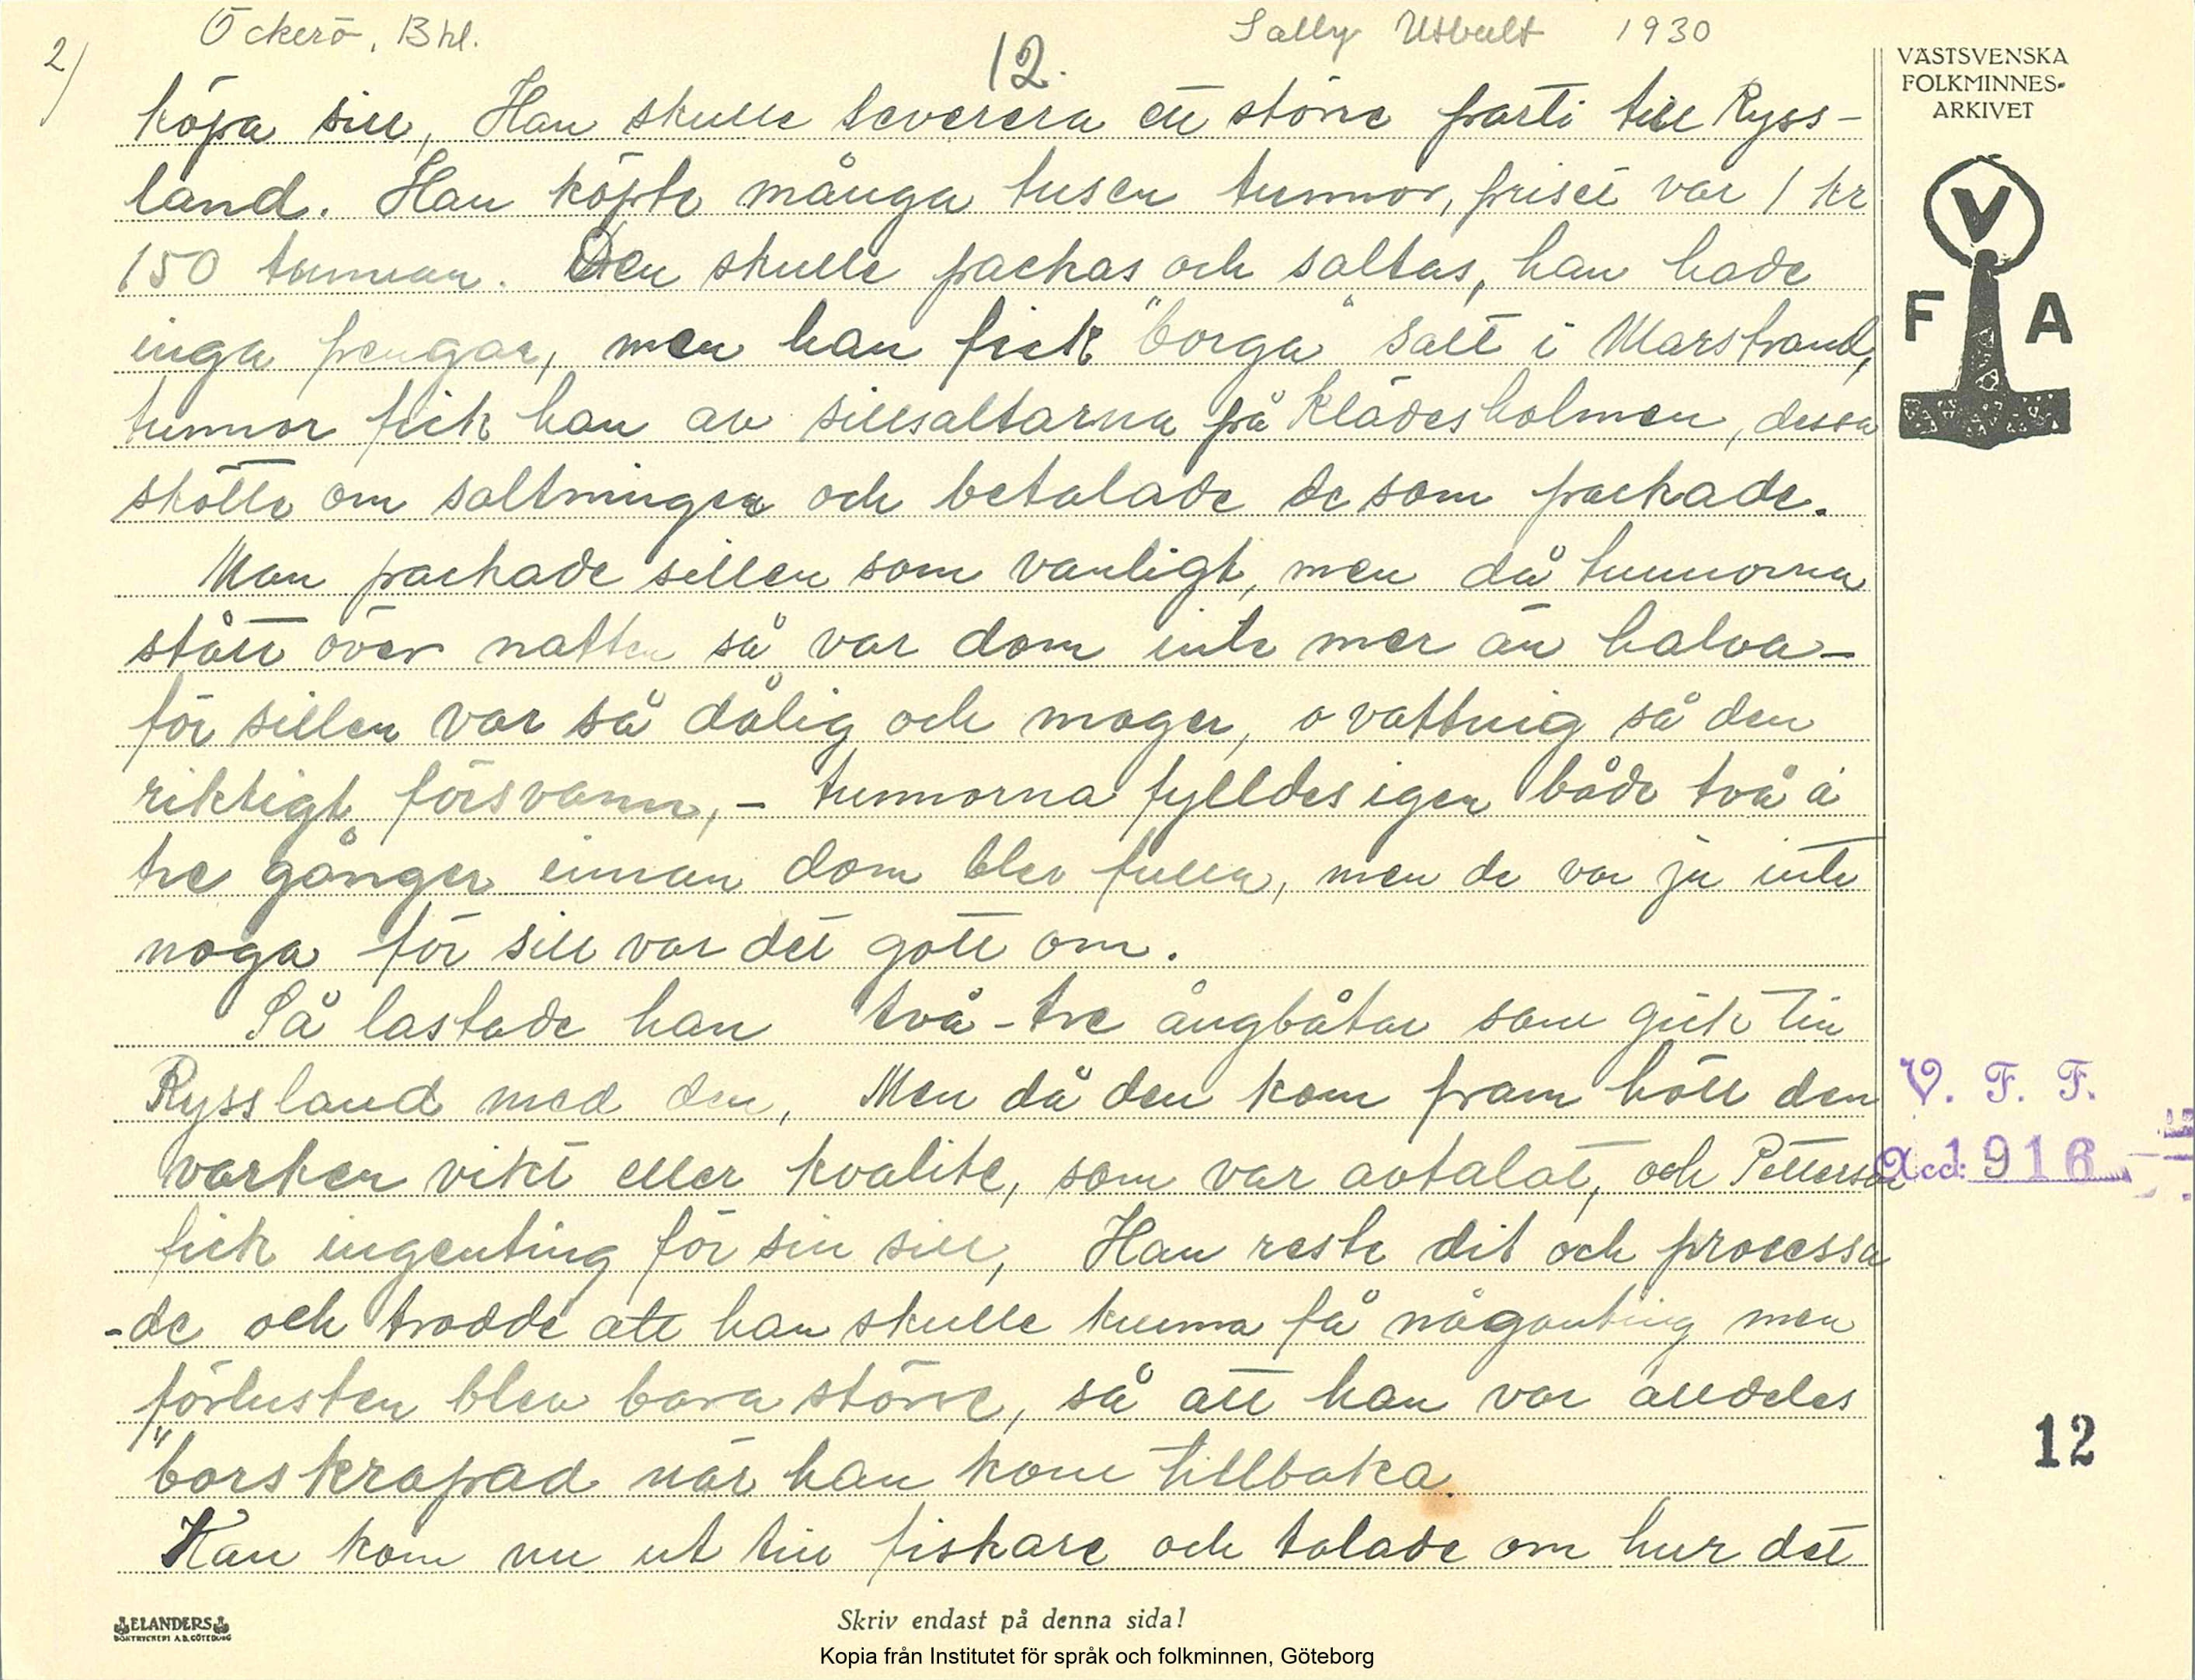 2/
Öckerö, Bhl.
12.
Sally Utbult 1930
köpa sill, Han skulle leverera ett större parti till Ryss-
land. Han köpte många tusen tunnor, priset var 1 kr
150 tunnan. Den skulle packas och saltas, han hade
inga pengar, men han fick "borga" salt i Marstrand,
tunnor fick han av sillsaltarna på Klädesholmen, dessa
skötte om saltningen och betalade de som packade.
Man packade sillen som vanligt, men då tunnorna
stått över natten så var dom inte mer än halva-
för sillen var så dålig och mager, o vattnig så den
riktigt försvann, - tunnorna fylldes igen både två à
tre gånger innan dom blev fulla, men de var ju inte
noga för sill var det gott om.
Så lastade han två-tre ångbåtar som gick till
Ryssland med den, Men då den kom fram höll den
varken vikt eller kvalite, som var avtalat, och Petterson
fick ingenting för sin sill, Han reste dit och processa
-de och trodde att han skulle kunna få någonting men
förlusten blev bara större, så att han var alldeles
"borskrapad när han kom tillbaka.
Han kom nu ut till fiskare och talade om hur det
VÄSTSVENSKA
FOLKMINNES-
ARKIVET
V
F A
V. F. F.
Acc: 1916
12
ELANDERS
BOKTRYCKERI A.B. GÖTEBORG
Skriv endast på denna sida!
Kopia från Institutet för språk och folkminnen, Göteborg